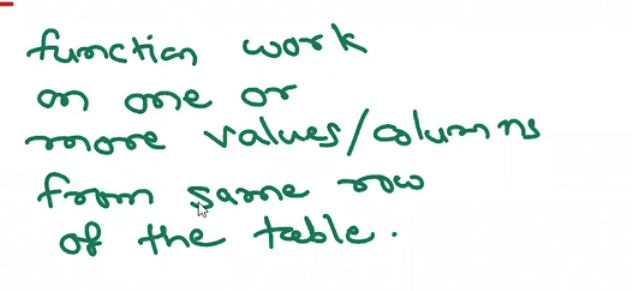 function work
on one or
more values/columns
from same row
of the table.